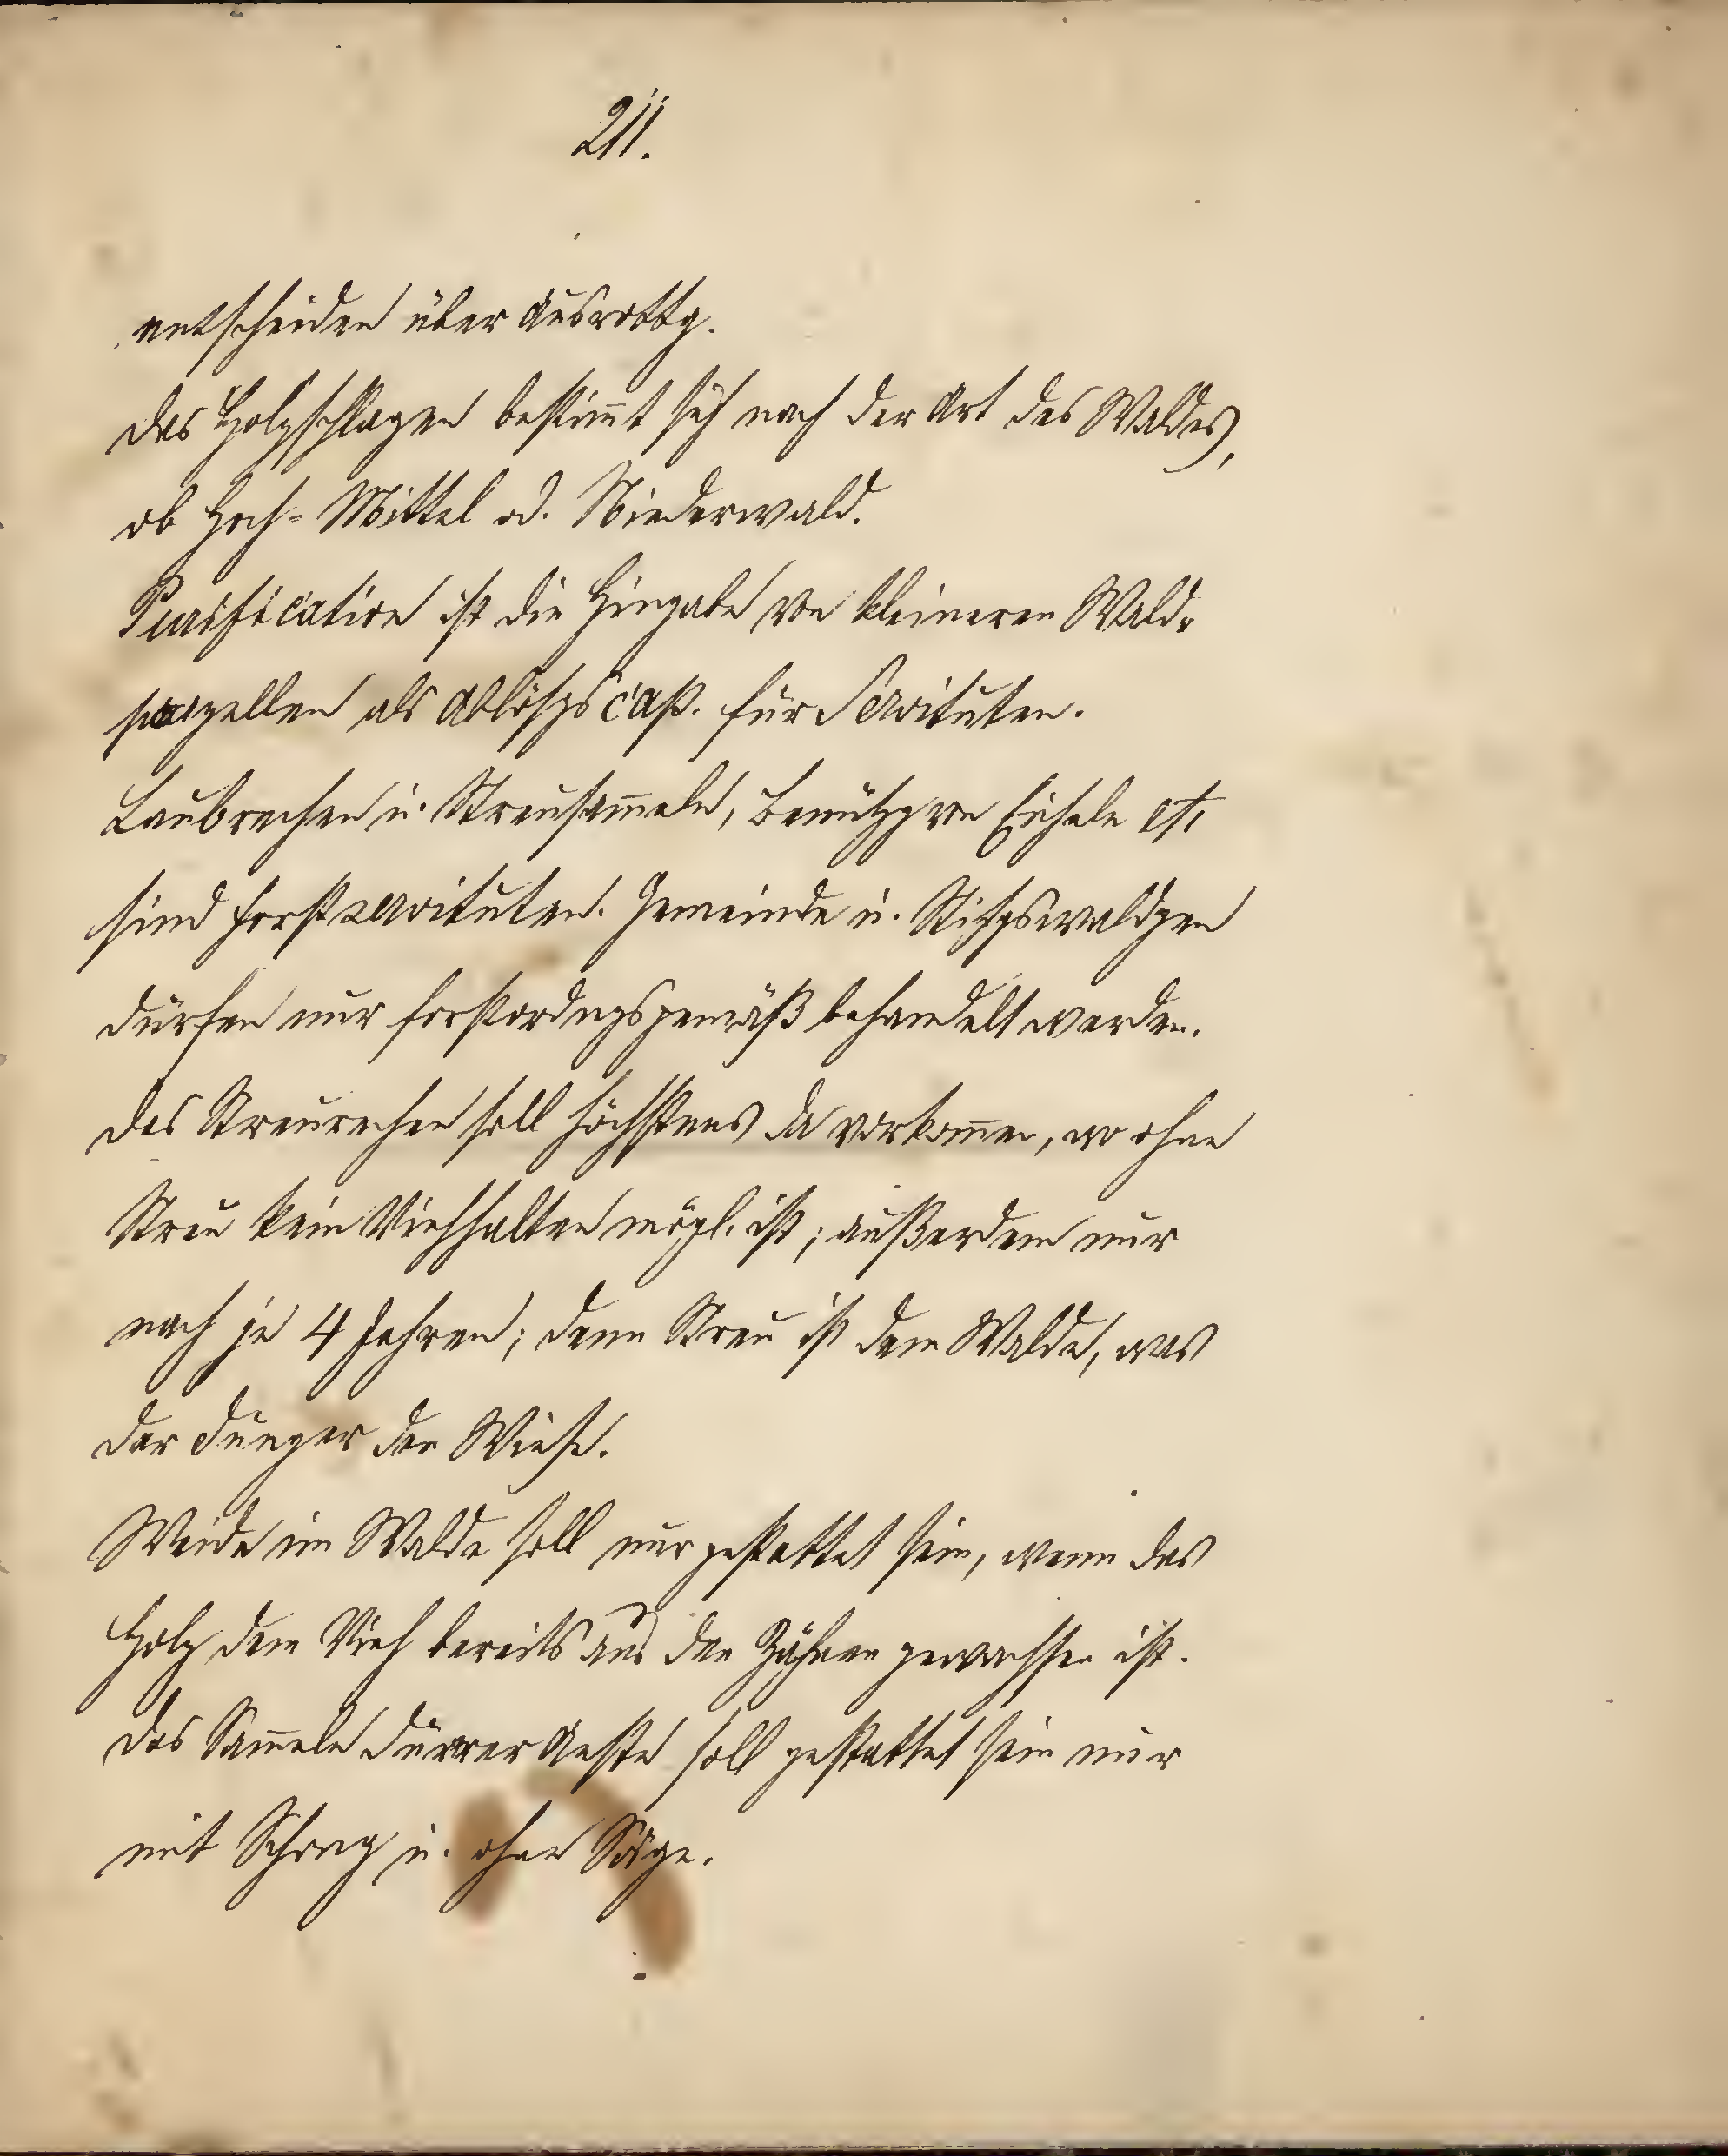 211.
entscheiden über Ausrottg.
Das Holzschlagen bestimt sich nach der Art des Waldes,
ob Hoch- Mittel od. Niederwald.
Purification ist die Hingabe von kleineren Wald-
parzellen als Ablösgscap. für Servituten.
Laubrechen u. Streusameln, Benützg von Eicheln etc
sind Forstservituten. Gemeinde u. Stiftgswaldgen
dürfen nur forstordngsgemäß behandelt werden.
Das Streurechen soll höchstens da vorkomen, wo ohne
Streu kein Viehhalten mögl. ist; außerdem nur
nach je 4 Jahren; denn Streu ist dem Walde, was
der Dünger der Wiese.
Weide im Walde soll nur gestattet sein, wenn das
Holz dem Vieh bereits aus den Zähnen gewachsen ist.
Das Sameln dürrer Aeste soll gestattet sein nur
mit u. ohne Säge.